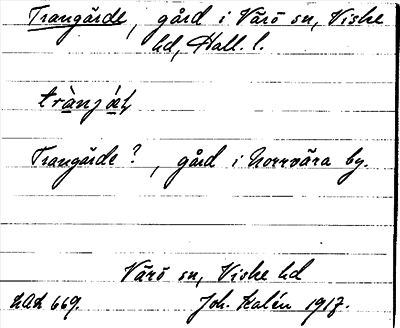 Trangärde, gård i Värö sn, Viske
hd, Hall. l.
Trangärde?, gård i Norrvära by.
Värö sn, Viske hd
669. Joh. Kalén 1917.